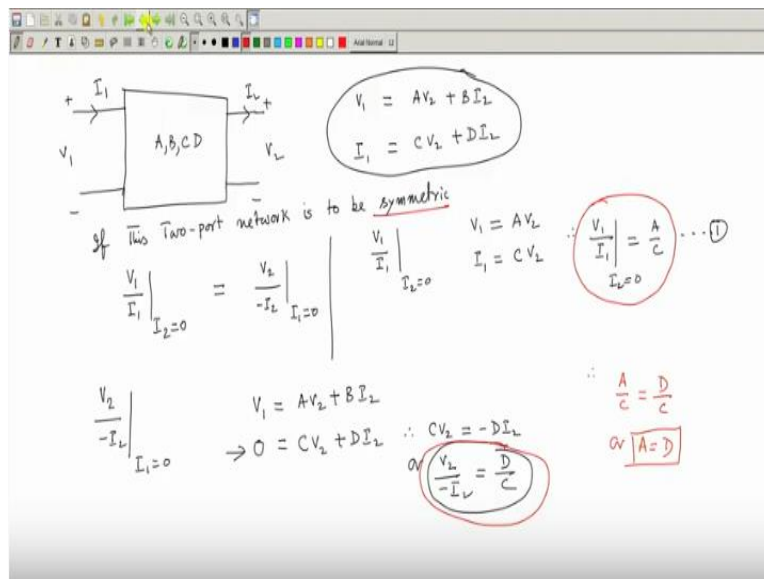 Arial Normal 12
I₁ I₂
+ +
A, B, C D
V₁ V₂
- -
V₁ = AV₂ + BI₂
I₁ = CV₂ + DI₂
If This Two-port network is to be symmetric
V₁/I₁ | I₂=0 = V₂/-I₂ | I₁=0
V₁/I₁ | I₂=0
V₁ = AV₂
I₁ = CV₂
∴ V₁/I₁ | I₂=0 = A/C ---- ①
V₂/-I₂ | I₁=0
V₁ = AV₂ + BI₂
→ 0 = CV₂ + DI₂ ∴ CV₂ = -DI₂
or V₂/-I₂ = D/C
∴ A/C = D/C
or A=D